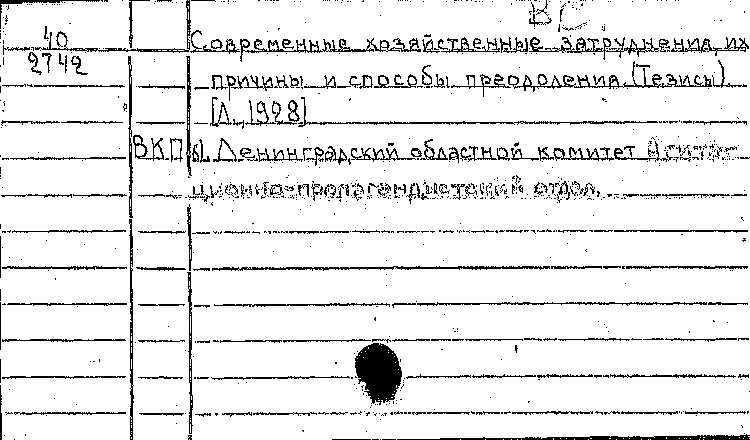 ВС
40
2742
Современные хозяйственные затруднения, их
причины и способы преодоления. (Тезисы).
[Л., 1928]
ВКП(б). Ленинградский областной комитет Агита-
ционно-пропагандистский отдел.